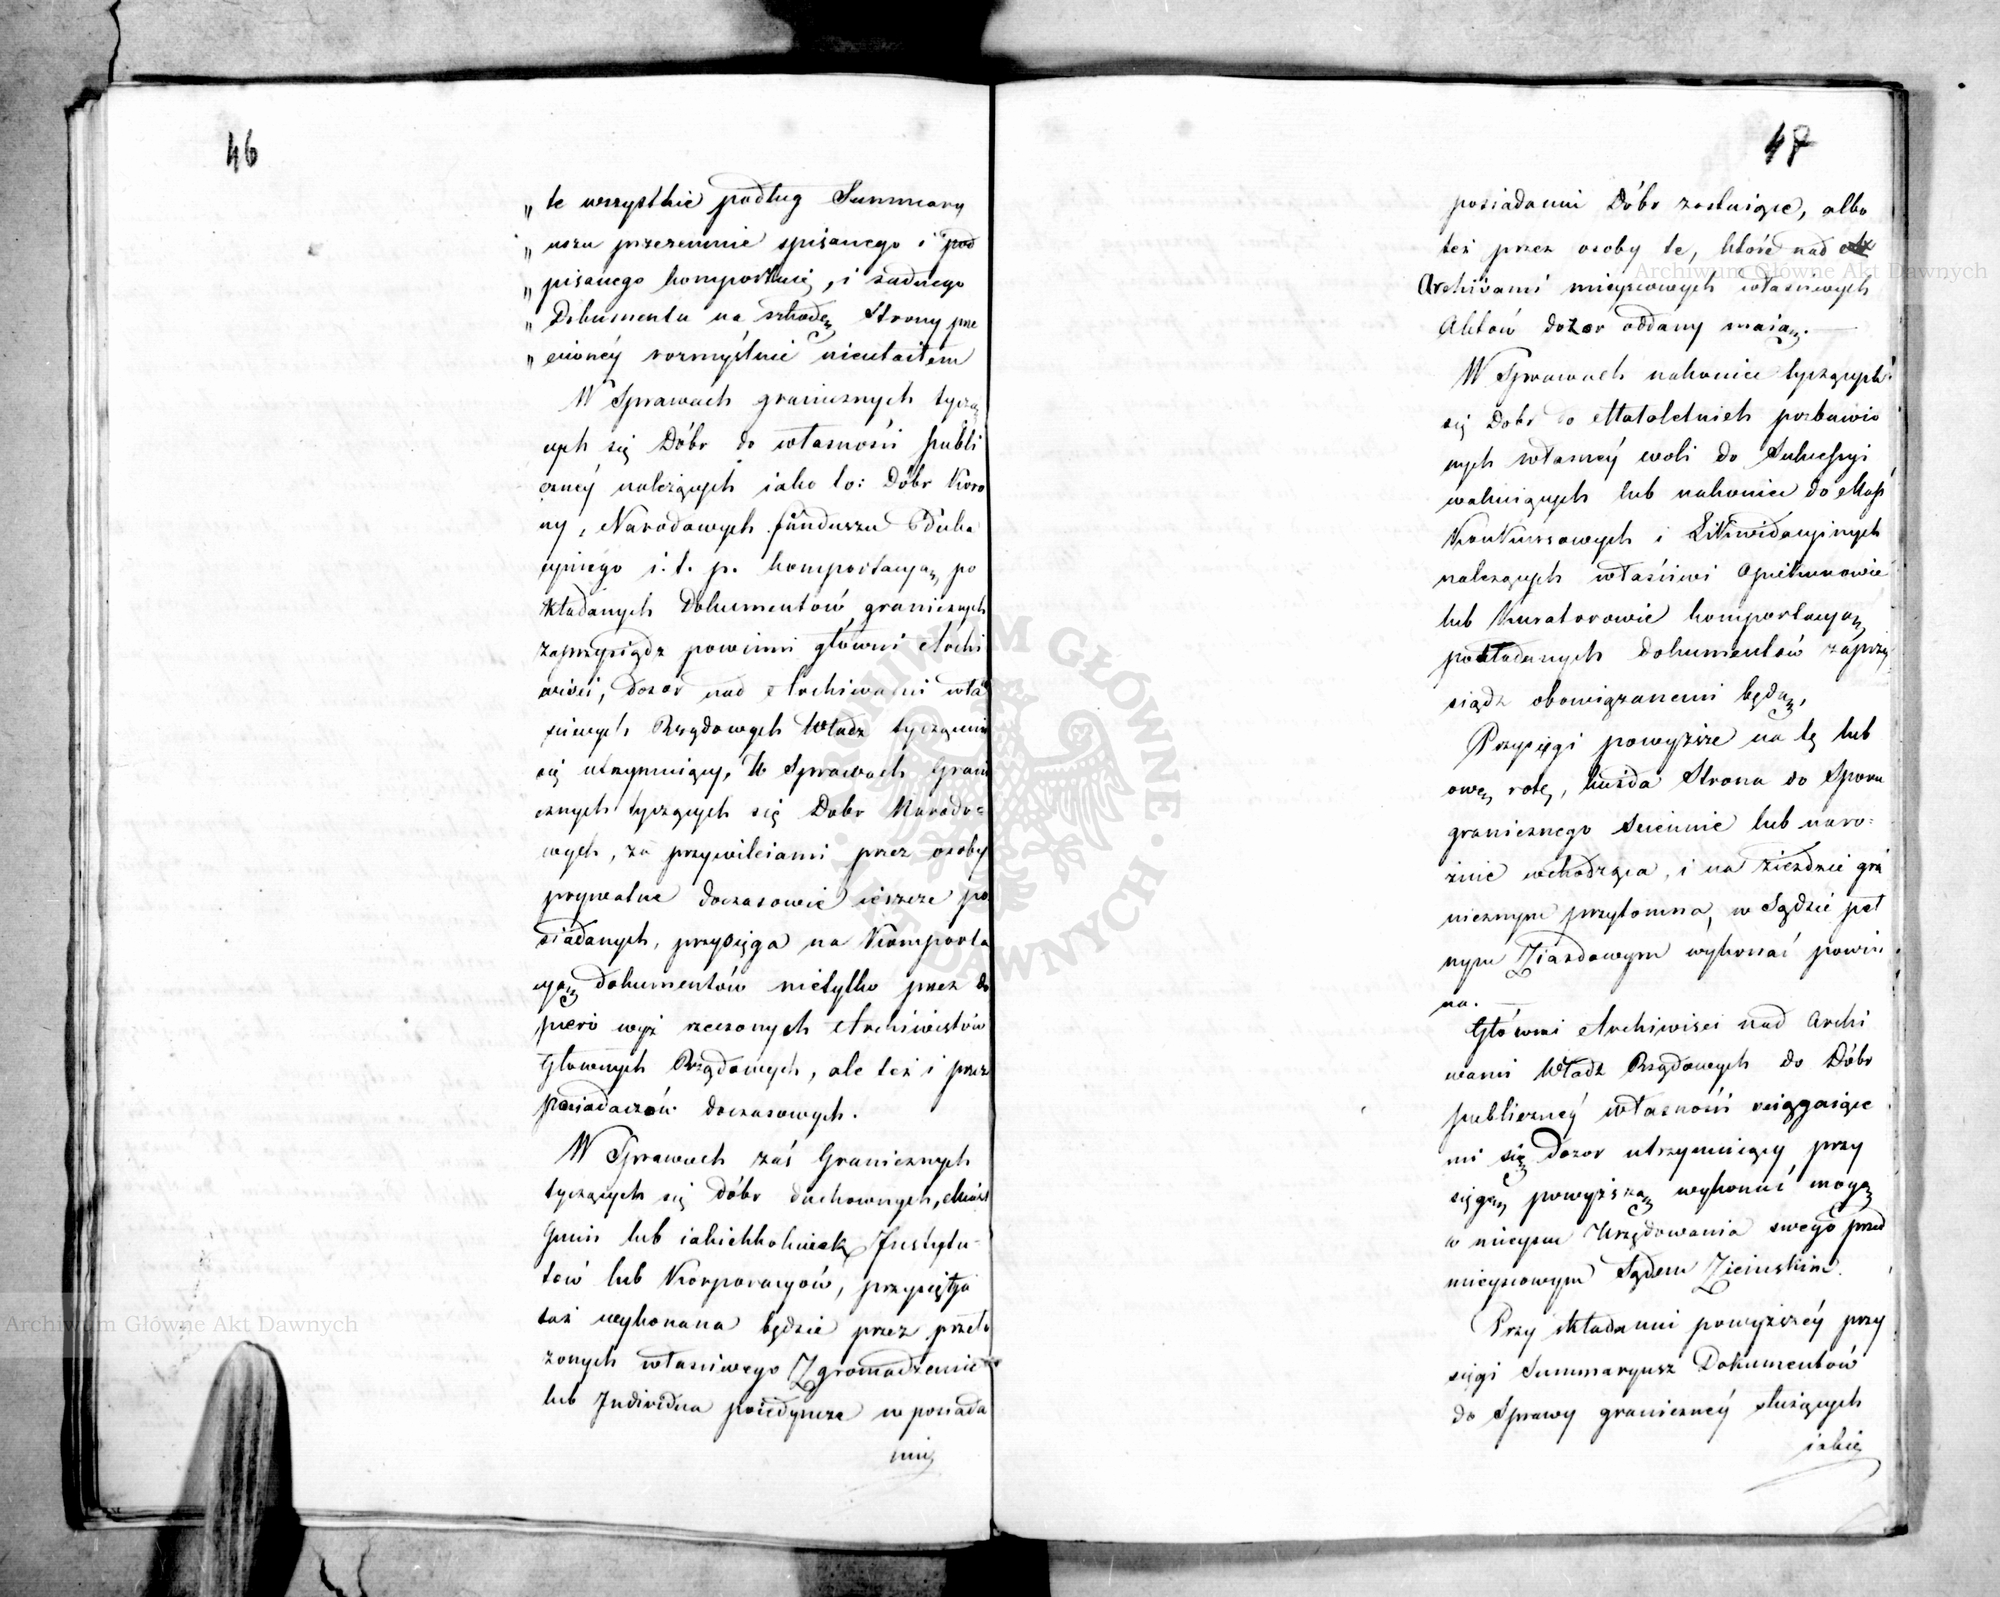 46
„ te wszystkie podług Summary
„ usza przezemnie spisanego i pod
„ pisanego komportuię, i żadnego
„ Dokumentu na szkodę Strony prze
„ ciwnéy rozmyślnie nieutaiłem
W Sprawach granicznych tyczą
cych się Dóbr do własności publi
cznéy należących iako to: Dóbr Koro
ny, Narodowych funduszu Eduka
cyinego i. t. p. komportacyą po
kładanych Dokumentów granicznych
zaprzysiądz powinni główni Archi
wiści, dozór nad Archiwami wła
ściwych Rządowych Władz tyczącemi
się utrzymuiący, W Sprawach Grani
cznych tyczących się Dobr Narodo=
wych, za przywileiami przez osoby
prywatne doczasowie ieszcze po
siadanych, przysięga na Komporta
cyą dokumentów nietylko przez do
piero wyż rzeczonych Archiwistów
Głownych Rządowych, ale też i przez
posiadaczów doczasowych.
W Sprawach zaś Granicznych
tyczących się Dóbr duchownych, Miast
Gmin lub iakichkolwiek Instytu-
tów lub Korporacyów, przysięga
taż wykonana będzie przez przeło
żonych właściwego Zgromadzenia
lub Individua poiedyncze w posiada
niu
47
posiadaniu Dóbr zostaiące, albo
też przez osoby te, które nad
Archivami mieyscowych własciwych
Aktów dozór oddany maią.
W Sprawach nakoniec tyczących
się Dobr do Małoletnich pozbawio
nych własnéy woli do Sukcessyi
wakuiących lub nakoniec do Mass
Konkursowych i Likwidacyinych
należących właściwi Opiekunowie
lub Kuratorowie komportacyą
pokładanych dokumentów zaprzy
siądz obowiązanemi będą,
Przysięgi powyższe na tę lub
owę rotę, każda Strona do Sporu
granicznego sciennie lub naro=
żnie wchodząca, i na zieździe gra
nicznym przytomna, w Sądzie peł
nym Ziazdowym wykonać powin
na.
Główni Archiwiści nad Archi
wami Władz Rządowych do Dóbr
publicznéy własności ściągaiące
mi się Dozor utrzymuiący przy
sięgę powyższą wykonać mogą
w mieyscu Urzędowania swego przed
mieyscowym Sądem Ziemskim.
Przy składaniu powyższéy przy
sięgi Summaryusz Dokumentów
do Sprawy granicznéy służących
iakie
Archiwum Główne Akt Dawnych
Archiwum Główne Akt Dawnych
ARCHIWUM GŁÓWNE AKT DAWNYCH